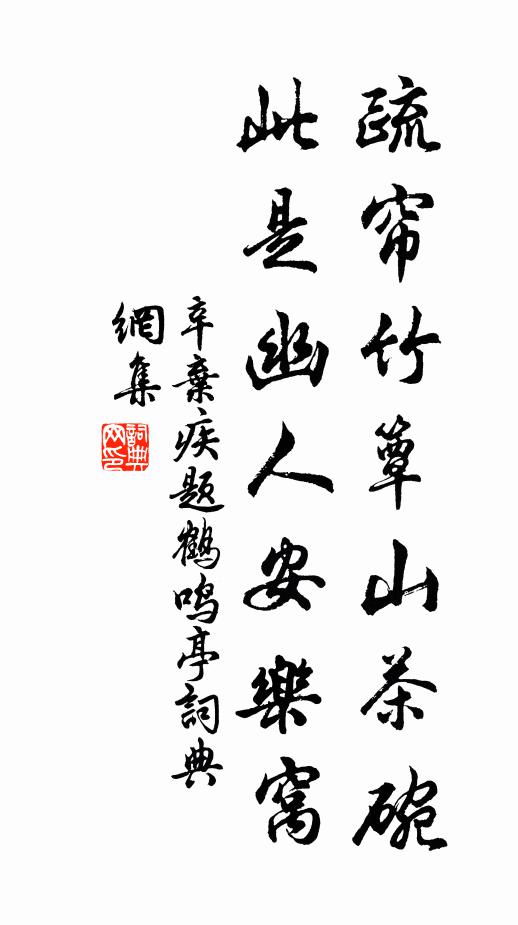 疏帘竹簟山茶碗
此是幽人安樂窩
辛棄疾题鶴鳴亭詞典
網集
詞典網印